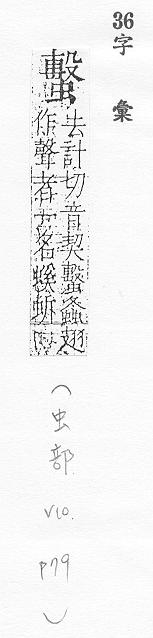 36字 彙
蟿
去計切音契蟿螽翅
作聲者 名螇蚸
(虫部 V10. P79)